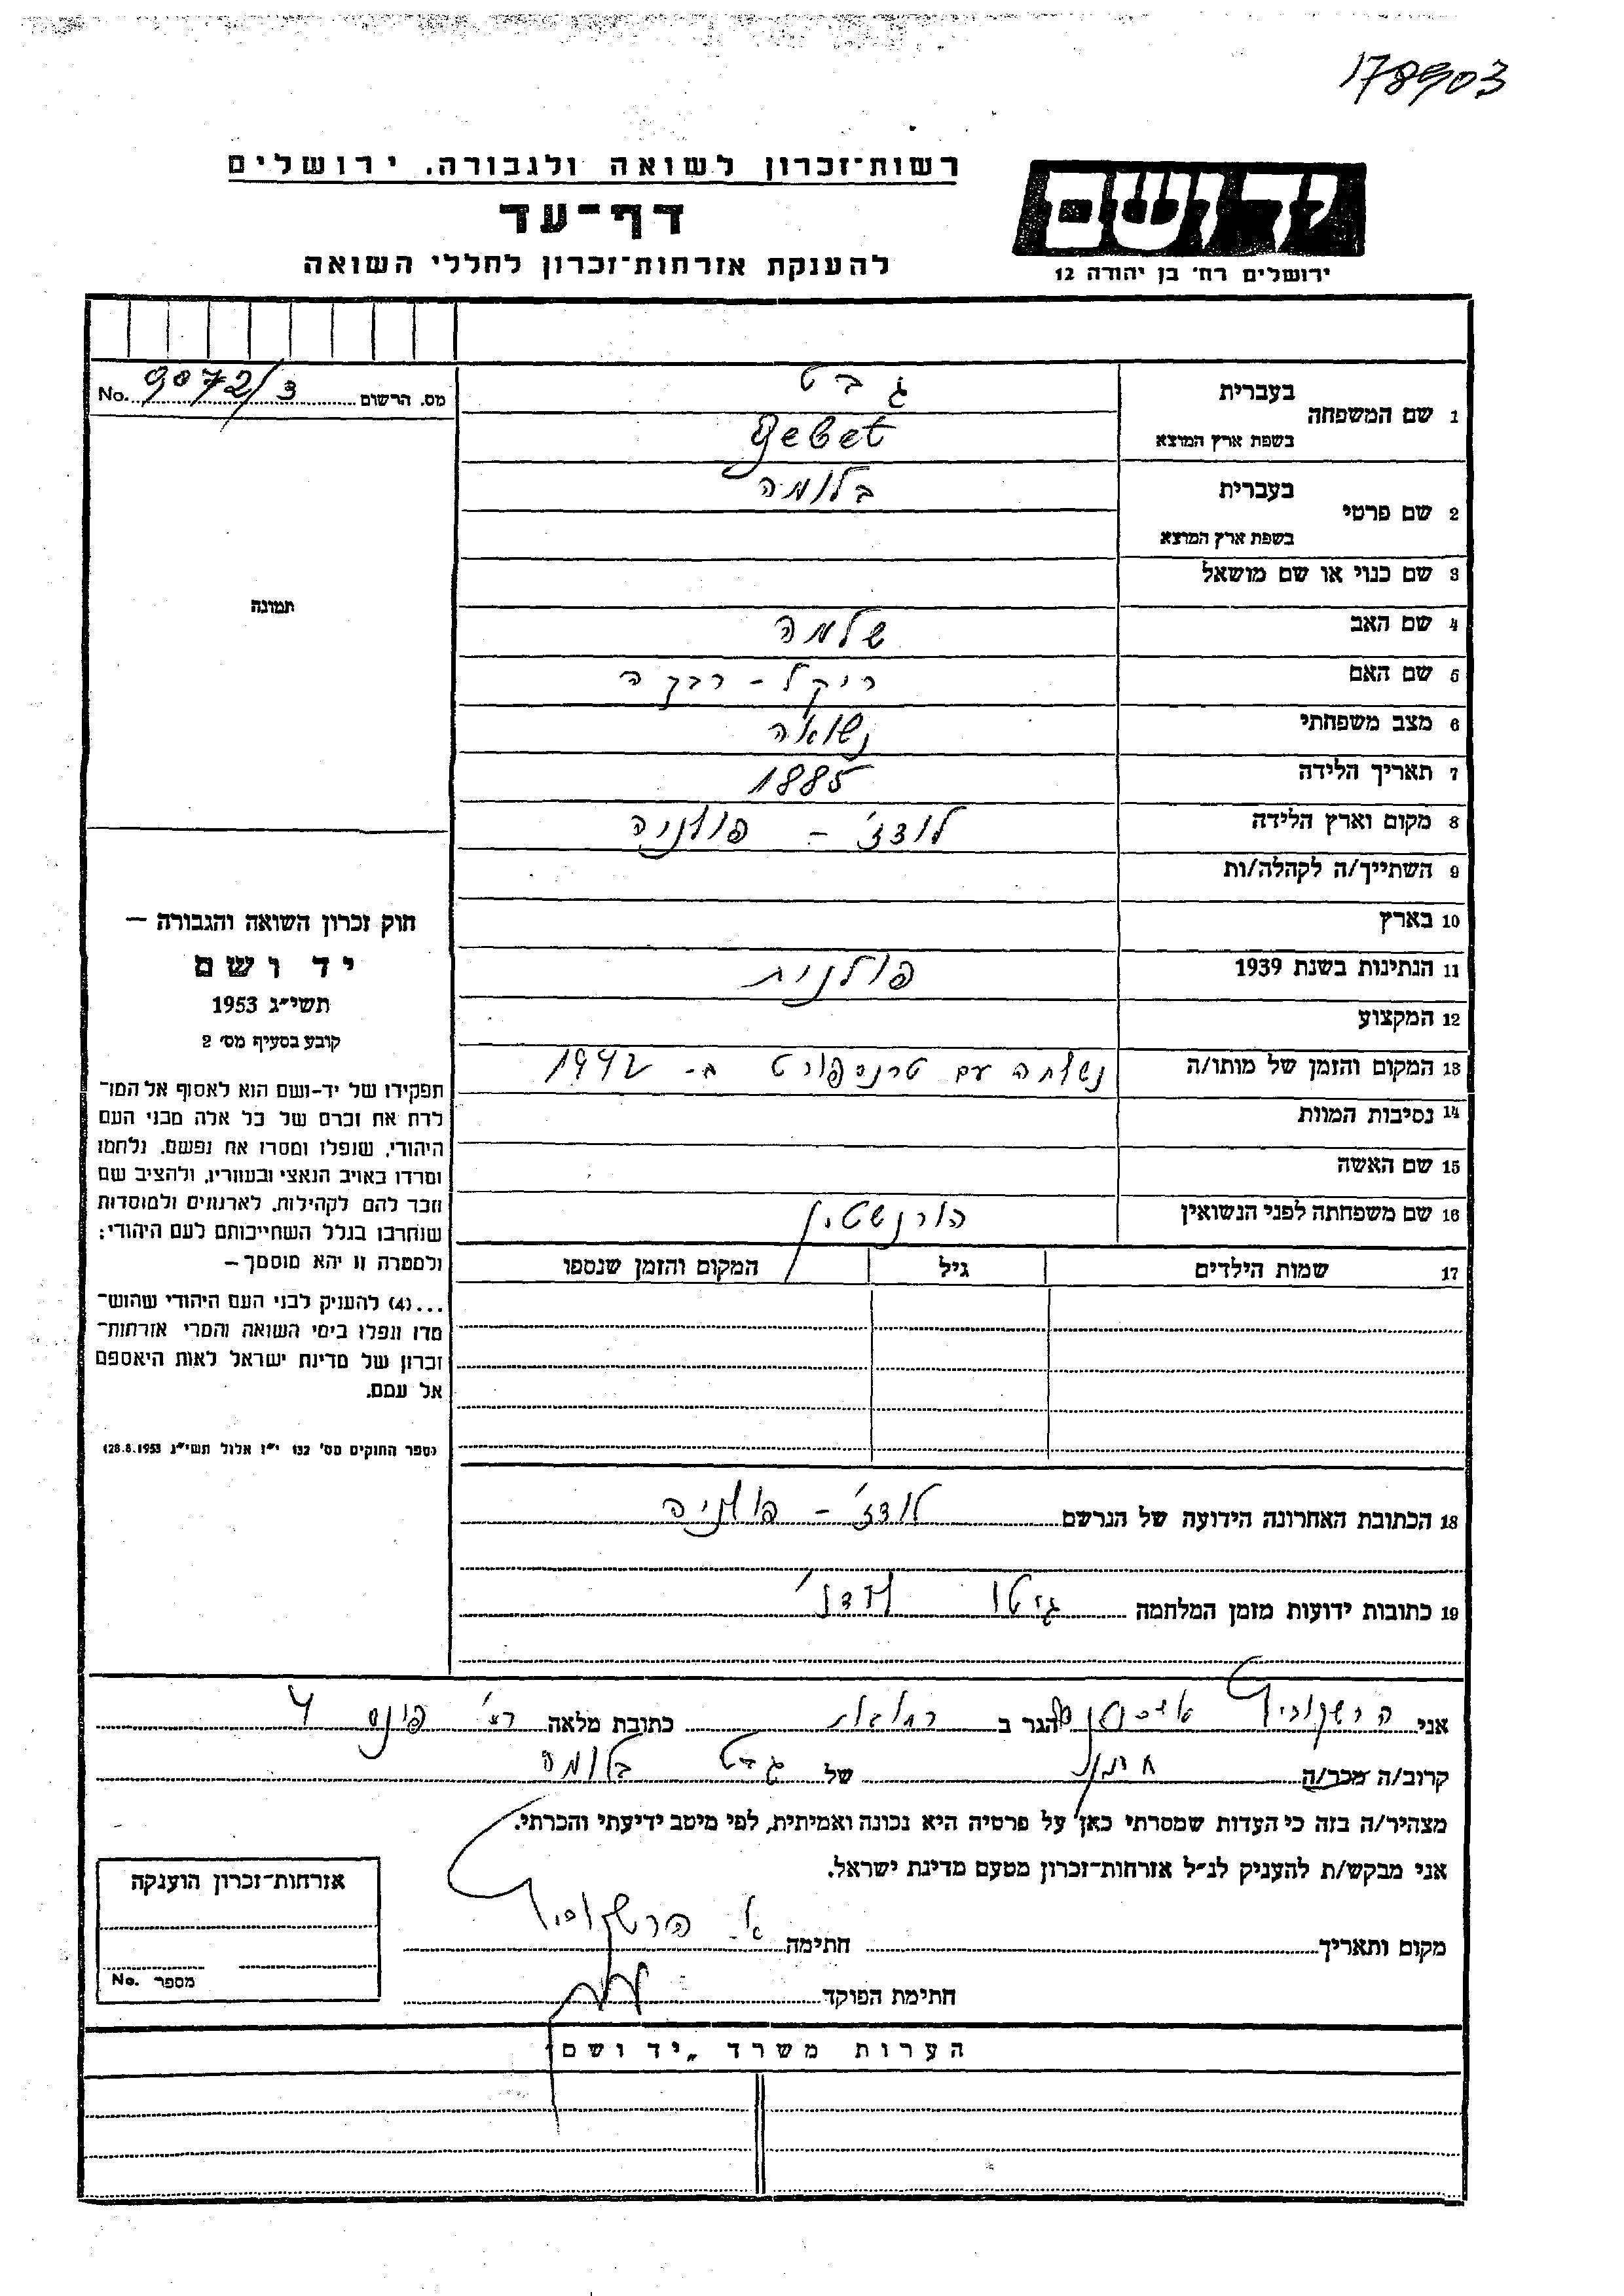 178903
רשות־זכרון לשואה ולגבורה, ירושלים
דף־עד
להענקת אזרחות־זכרון לחללי השואה
יד ושם
ירושלים רח' בן יהודה 12
מס. הרשום 9072/3 No.
1 שם המשפחה
בעברית גבט
בשפת ארץ המוצא Gebet
2 שם פרטי
בעברית בלומה
בשפת ארץ המוצא
3 שם כנוי או שם מושאל
4 שם האב שלמה
5 שם האם ריקל - רבקה
6 מצב משפחתי נשואה
7 תאריך הלידה 1885
8 מקום וארץ הלידה לודז' - פולניה
9 השתייך/ה לקהלה/ות
10 בארץ
11 הנתינות בשנת 1939 פולנית
12 המקצוע
13 המקום והזמן של מותו/ה נשלחה עם טרנספורט ב- 1942
14 נסיבות המוות
15 שם האשה
16 שם משפחתה לפני הנשואין הורנשטין
17 שמות הילדים גיל המקום והזמן שנספו
תמונה
חוק זכרון השואה והגבורה —
יד ושם
תשי״ג 1953
קובע בסעיף מס׳ 2
תפקידו של יד-ושם הוא לאסוף אל המו־
לדת את זכרם של כל אלה מבני העם
היהודי, שנפלו ומסרו את נפשם, נלחמו
ומרדו באויב הנאצי ובעוזריו, ולהציב שם
וזכר להם לקהילות, לארגונים ולמוסדות
שנחרבו בגלל השתייכותם לעם היהודי;
ולמטרה זו יהא מוסמך —
...(4) להעניק לבני העם היהודי שהוש־
מדו ונפלו בימי השואה והמרי אזרחות־
זכרון של מדינת ישראל לאות היאספם
אל עמם.
(ספר החוקים מס׳ 132 י״ז אלול תשי״ג 28.8.1953)
18 הכתובת האחרונה הידועה של הנרשם לודז' - פולניה
19 כתובות ידועות מזמן המלחמה גיטו לודז'
אני הרשקוביץ הגר ב כתובת מלאה רח' פינס 4
קרוב/ה מכר/ה של גבט בלומה
מצהיר/ה בזה כי העדות שמסרתי כאן על פרטיה היא נכונה ואמיתית, לפי מיטב ידיעתי והכרתי.
אני מבקש/ת להעניק לנ״ל אזרחות־זכרון מטעם מדינת ישראל.
מקום ותאריך חתימה א. הרשקוביץ
חתימת הפוקד
אזרחות־זכרון הוענקה
מספר No.
הערות משרד „יד ושם